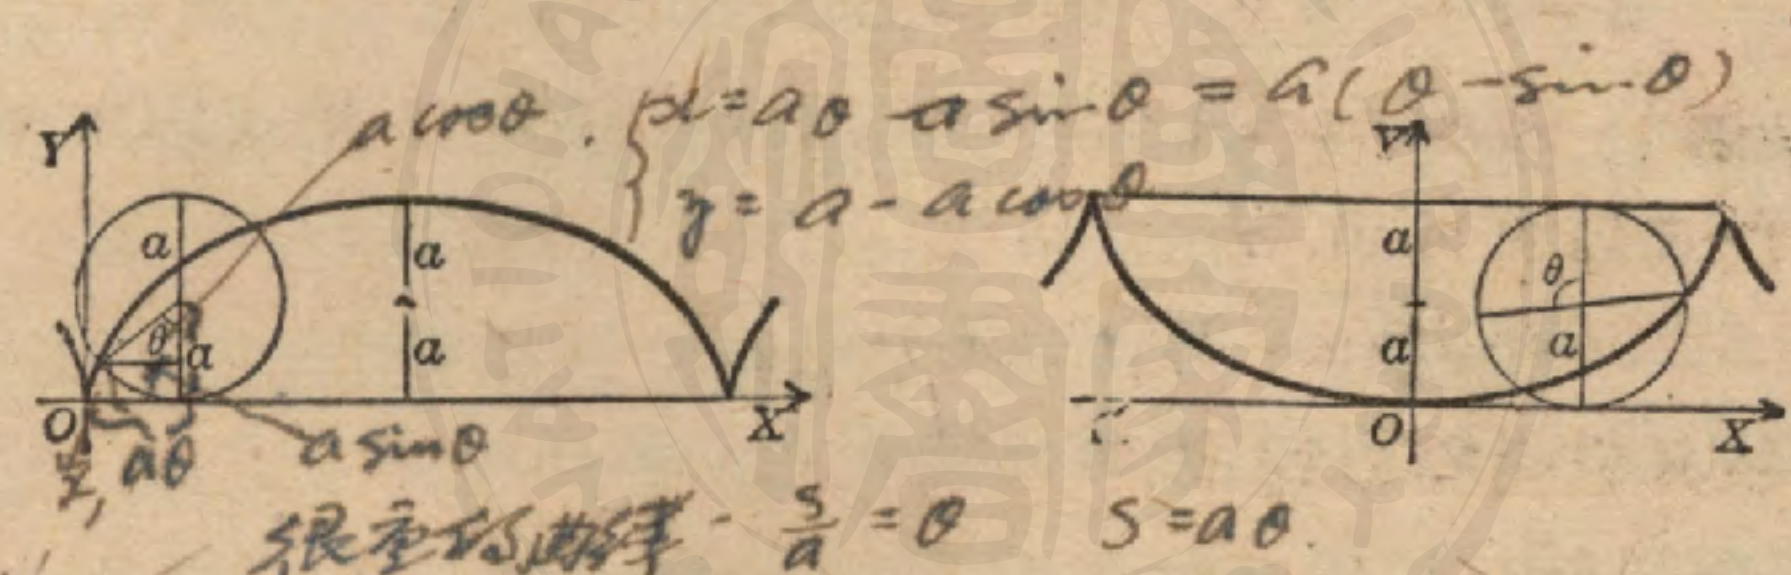 a cosθ. { x = aθ - a sinθ = a(θ - sinθ)
y = a - a cosθ
Y
a
a
θ
a
a
O
X
aθ
a sinθ
Y
a
a
θ
a
O
X
很重的曲线 - s/a = θ S = aθ.